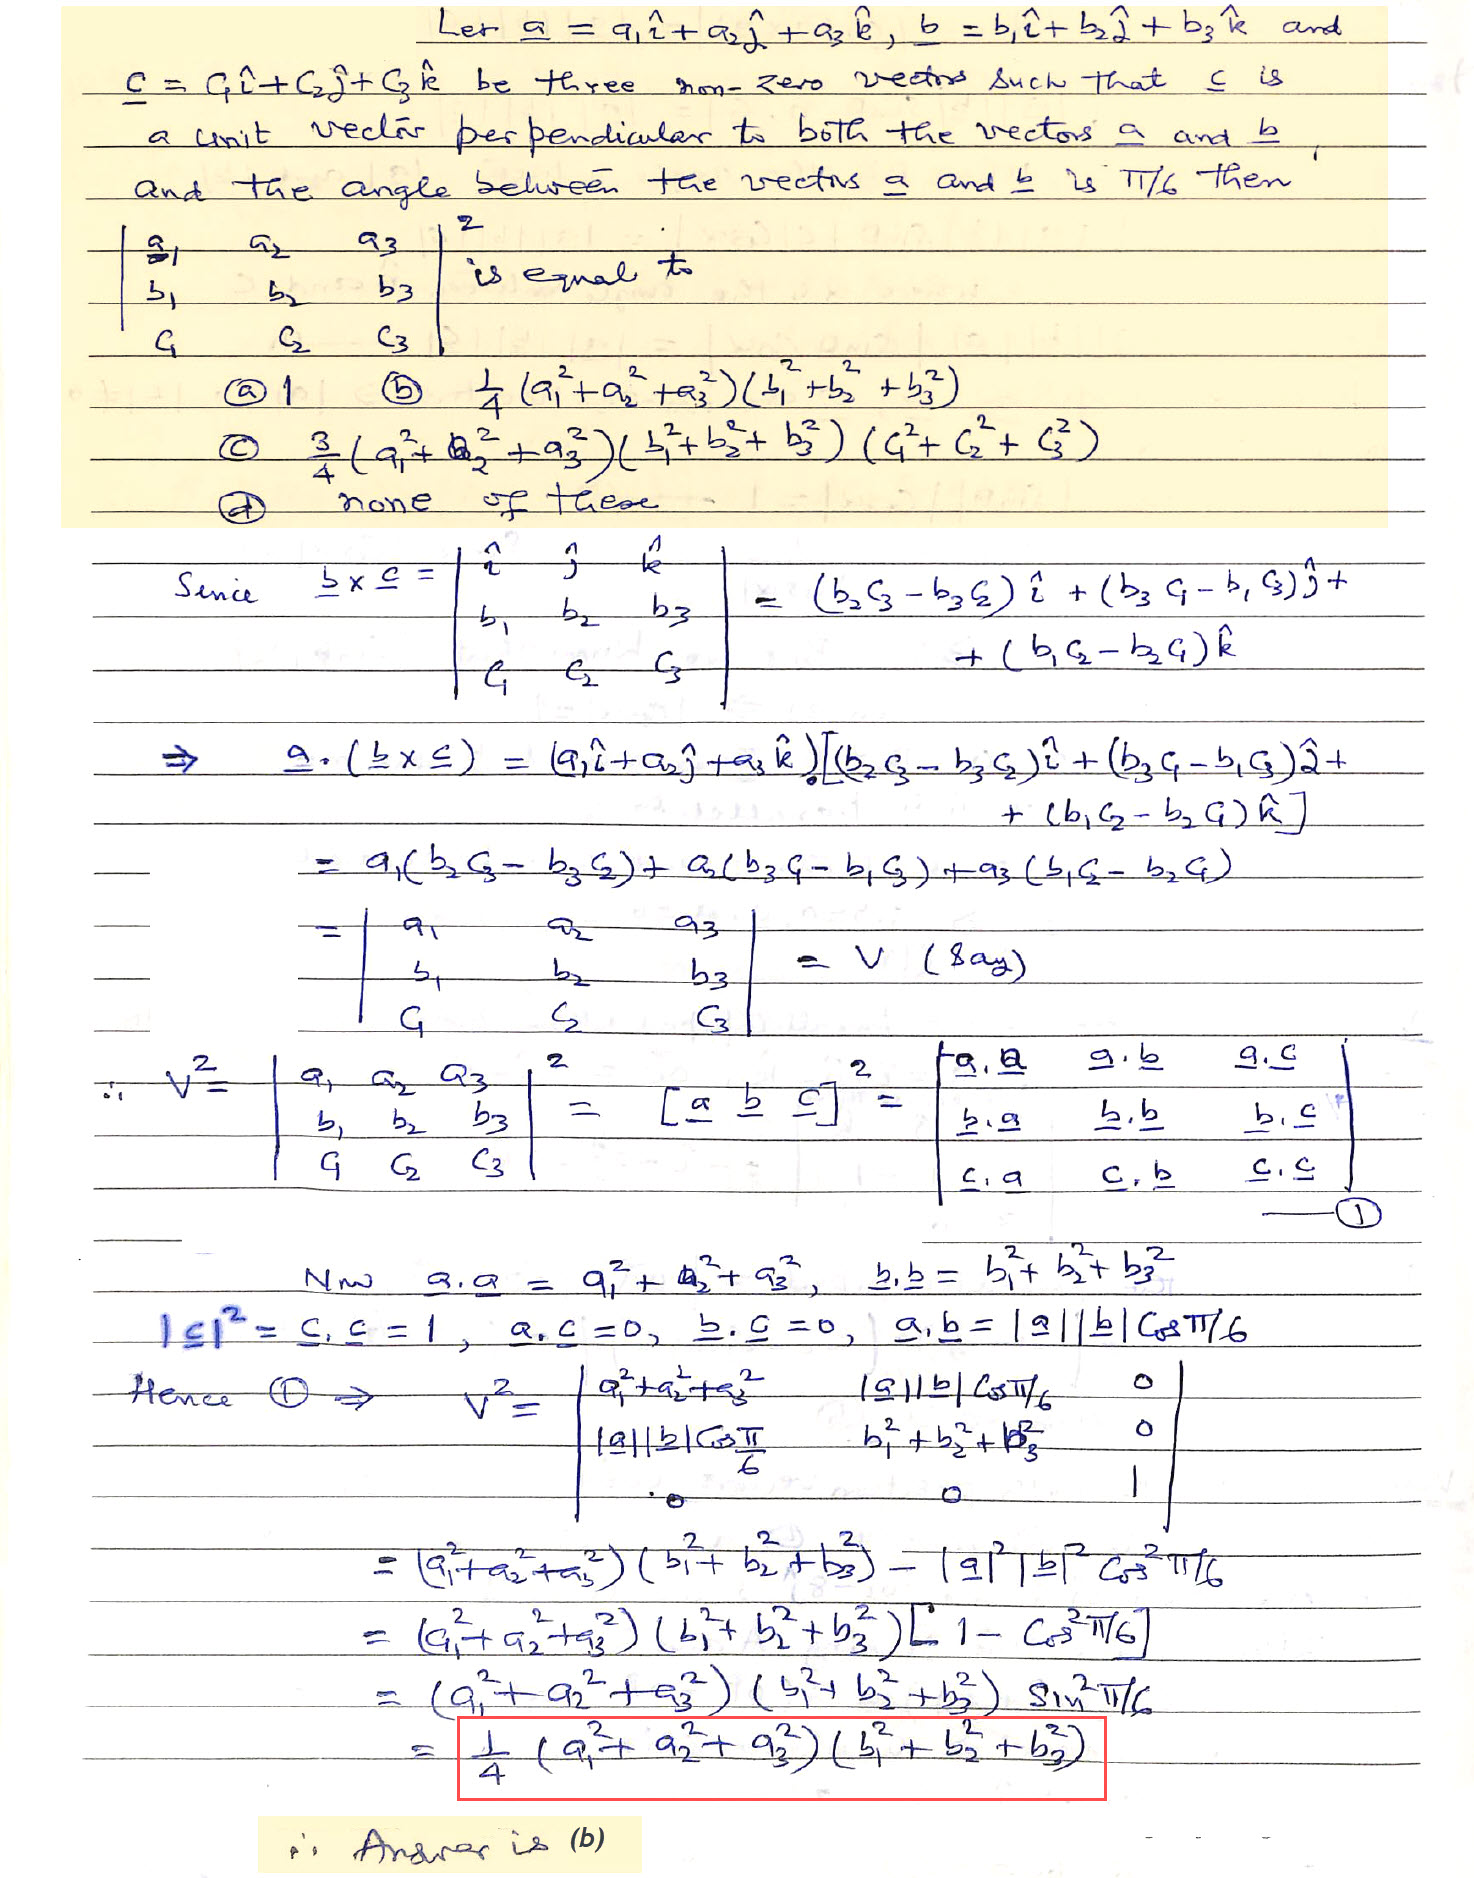 Let a = a₁î + a₂ĵ + a₃k̂, b = b₁î + b₂ĵ + b₃k̂ and
c = c₁î + c₂ĵ + c₃k̂ be three non-zero vectors such that c is
a unit vector perpendicular to both the vectors a and b,
and the angle between the vectors a and b is π/6 then
| a₁ a₂ a₃ |²
| b₁ b₂ b₃ | is equal to
| c₁ c₂ c₃ |
(a) 1 (b) 1/4 (a₁² + a₂² + a₃²)(b₁² + b₂² + b₃²)
(c) 3/4 (a₁² + a₂² + a₃²)(b₁² + b₂² + b₃²)(c₁² + c₂² + c₃²)
(d) none of these
Sence b × c = | î ĵ k̂ |
| b₁ b₂ b₃ | = (b₂c₃ − b₃c₂)î + (b₃c₁ − b₁c₃)ĵ +
| c₁ c₂ c₃ | + (b₁c₂ − b₂c₁)k̂
⇒ a . (b × c) = (a₁î + a₂ĵ + a₃k̂).[(b₂c₃ − b₃c₂)î + (b₃c₁ − b₁c₃)ĵ +
+ (b₁c₂ − b₂c₁)k̂]
= a₁(b₂c₃ − b₃c₂) + a₂(b₃c₁ − b₁c₃) + a₃(b₁c₂ − b₂c₁)
= | a₁ a₂ a₃ |
| b₁ b₂ b₃ | = V (Say)
| c₁ c₂ c₃ |
∴ V² = | a₁ a₂ a₃ |² = [a b c]² = | a.a a.b a.c |
| b₁ b₂ b₃ | | b.a b.b b.c |
| c₁ c₂ c₃ | | c.a c.b c.c |
—— (1)
Now a.a = a₁² + a₂² + a₃², b.b = b₁² + b₂² + b₃²
|c|² = c.c = 1, a.c = 0, b.c = 0, a.b = |a||b| Cos π/6
Hence (1) ⇒ V² = | a₁² + a₂² + a₃² |a||b| Cos π/6 0 |
| |a||b| Cos π/6 b₁² + b₂² + b₃² 0 |
| 0 0 1 |
= (a₁² + a₂² + a₃²)(b₁² + b₂² + b₃²) − |a|²|b|² Cos² π/6
= (a₁² + a₂² + a₃²)(b₁² + b₂² + b₃²)[1 − Cos² π/6]
= (a₁² + a₂² + a₃²)(b₁² + b₂² + b₃²) Sin² π/6
= 1/4 (a₁² + a₂² + a₃²)(b₁² + b₂² + b₃²)
∴ Answer is (b)